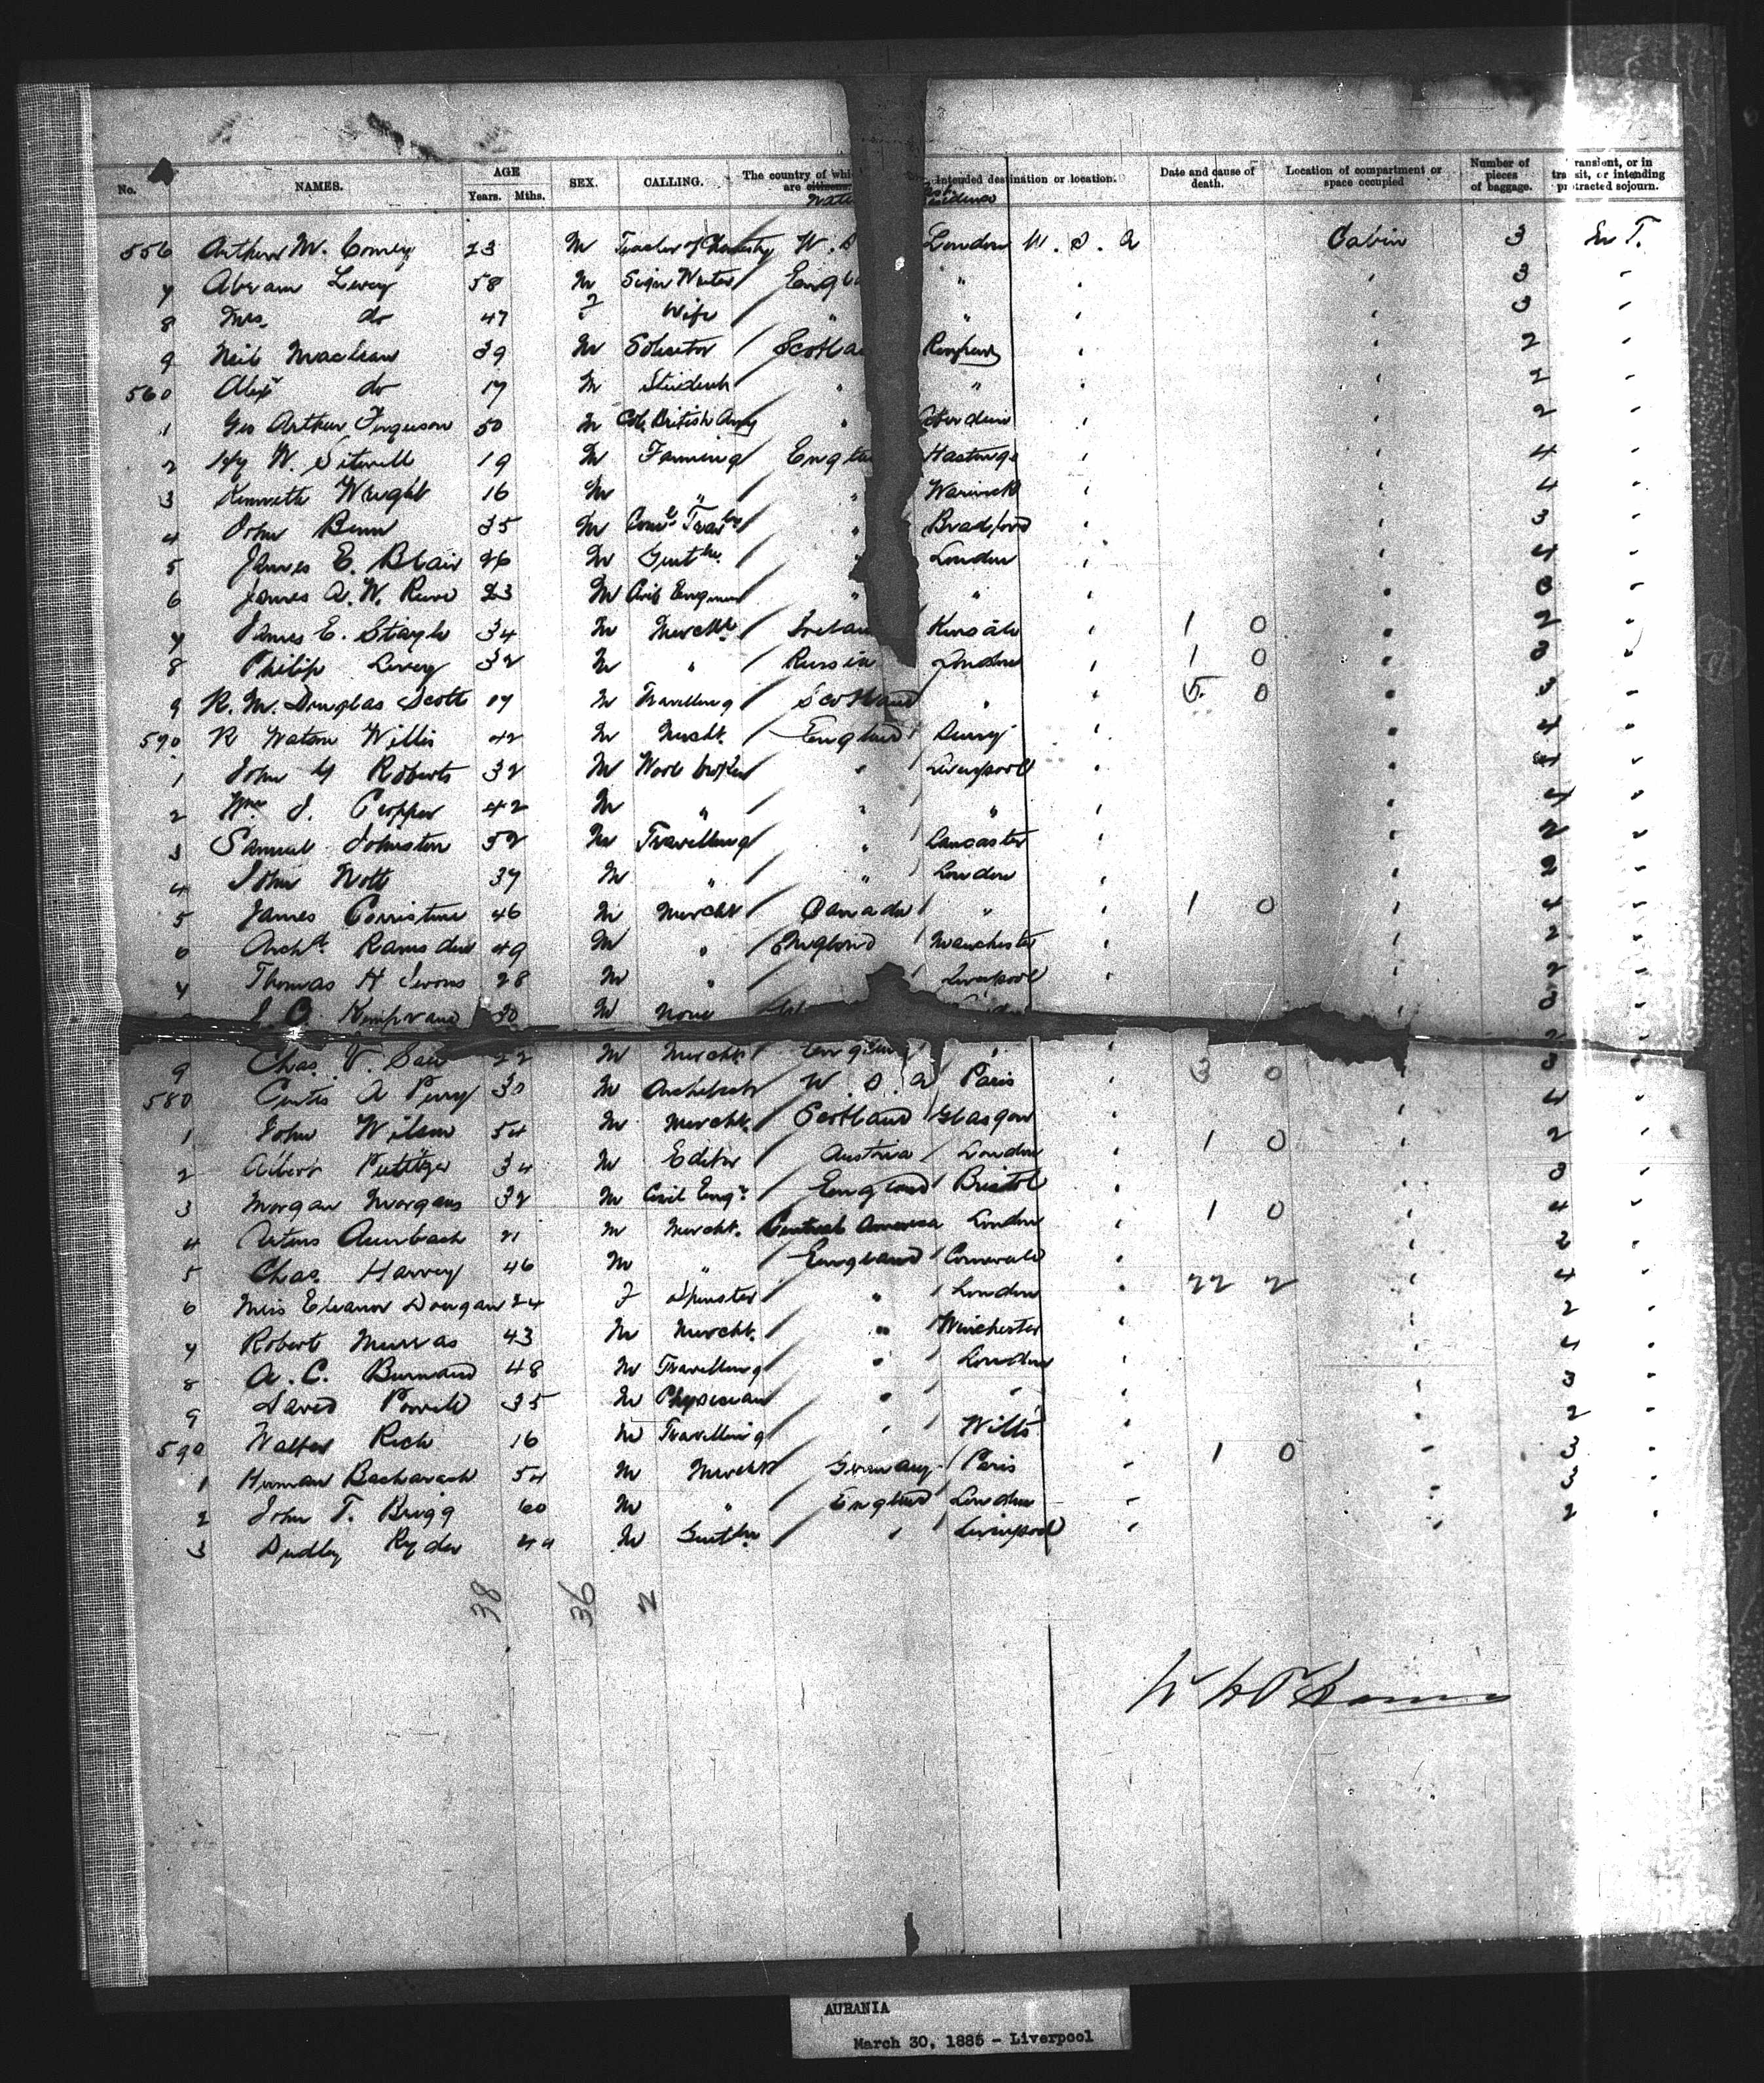 No. NAMES. AGE Years. Mths. SEX. CALLING. The country of whi are citizens. Intended destination or location. Date and cause of death. Location of compartment or space occupied Number of pieces of baggage. ransient, or in transit, or intending protracted sojourn.
556 Arthur M. 23 M Teacher of U.S London U.S.A Cabin 3 In T.
7 Abram Levey 58 M Sign Writer Engla " 3 "
8 Mrs. do 47 F Wife " " 3 "
9 Neil Maclean 39 M Solicitor Scotla 2 "
560 Alexr do 17 M Student " " 2 "
1 Geo Arthur Ferguson 50 M Col. British Army " Aberdeen 2 "
2 Hy W. Sitwell 19 M Farming Engla Hastings 4 "
3 Kenneth Wright 16 M " " Warwick 4 "
4 John Benn 35 M Comel Travler " Bradford 3 "
5 James E. Blair 26 M Gentln. " London 4 "
6 James A. W. 23 M Civil Engineer " " 3 "
7 James E. 34 M Mercht. Irelan Kinsale 1 0 2 "
8 Philip Levey 32 M " Russia London 1 0 3 "
9 R. M. Douglas Scott 17 M Travelling Scotland " 5 0 3 "
590 R Watson Willis 42 M Mercht. England 4 "
1 John Y Roberts 32 M Wool broker " Liverpool 4 "
2 Wm. J. Cropper 42 M " " " 4 "
3 Samuel Johnston 52 M Travelling " Lancaster 2 "
4 John Nott 37 M " " London 2 "
5 James 46 M Mercht Canada " 1 0 4 "
6 Archd. Ramsden 49 M " England Manchester 2 "
7 Thomas H 28 M " Liverpool 2 "
J. O 30 M None 3 "
9 Chas. V. 22 M Mercht. England " 2 "
580 Curtis A Perry 30 M Architect U.S.A Paris 3 0 3 "
1 John Wilson 54 M Mercht. Scotland Glasgow 4 "
2 Albert 34 M Editor Austria London 1 0 2 "
3 Morgan Morgans 32 M Civil Engr. England Bristol 3 "
4 Arturo Auerbach 21 M Mercht. Central America London 1 0 4 "
5 Chas. Harvey 46 M " England Cornwall 2 "
6 Miss Eleanor Dongan 24 F Spinster " London 22 2 4 "
7 Robert 43 M Mercht. " Winchester 2 "
8 A. C. Burnand 48 M Travelling " London 4 "
9 David Powell 35 M Physician " " 3 "
590 Walter Rich 16 M Travelling " Wilts 2 "
1 Herman Bacharach 54 M Mercht Germany Paris 1 0 3 "
2 John T. Brigg 60 M " England London 3 "
3 Dudley Ryder 44 M Gentln. " Liverpool 2 "
38 36 2
AURANIA
March 30, 1885 - Liverpool